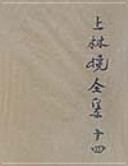 上林暁全集 十四